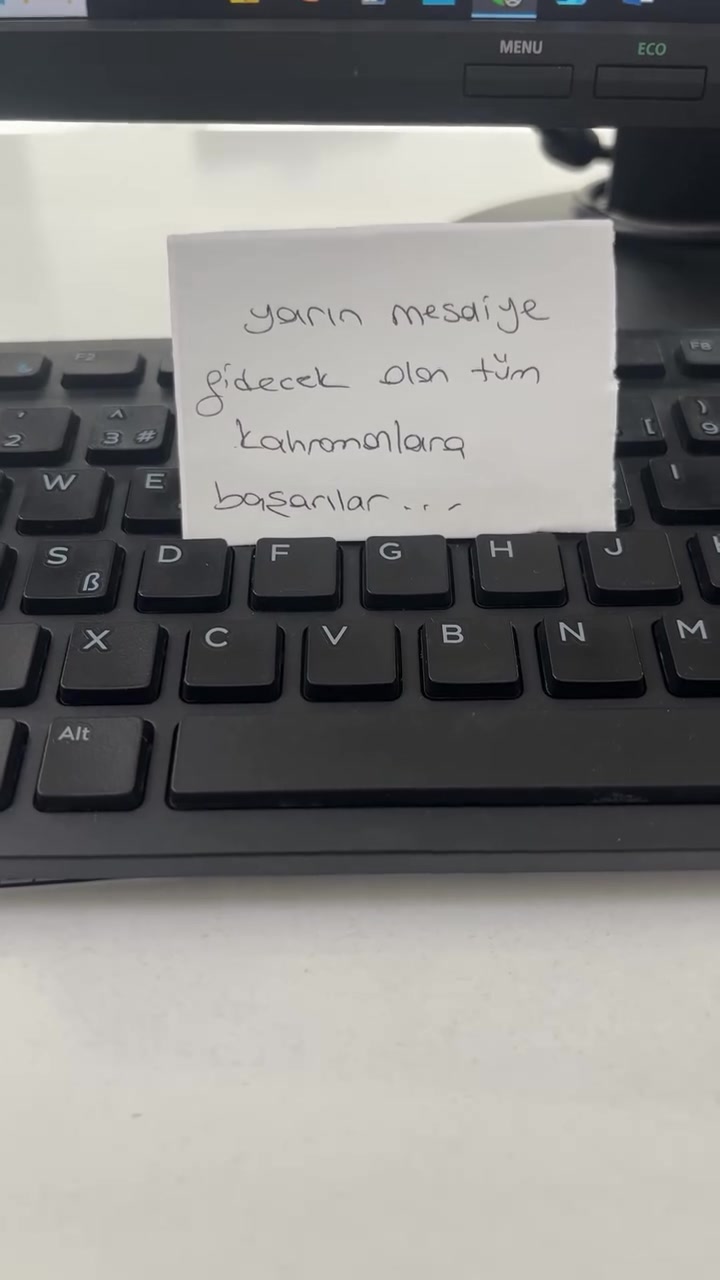 MENU ECO
yarın mesaiye
gidecek olan tüm
kahramanlara
başarılar...
F2 F8
' ^ )
2 3 # [ 9
W E I
S ß D F G H J
X C V B N M
Alt